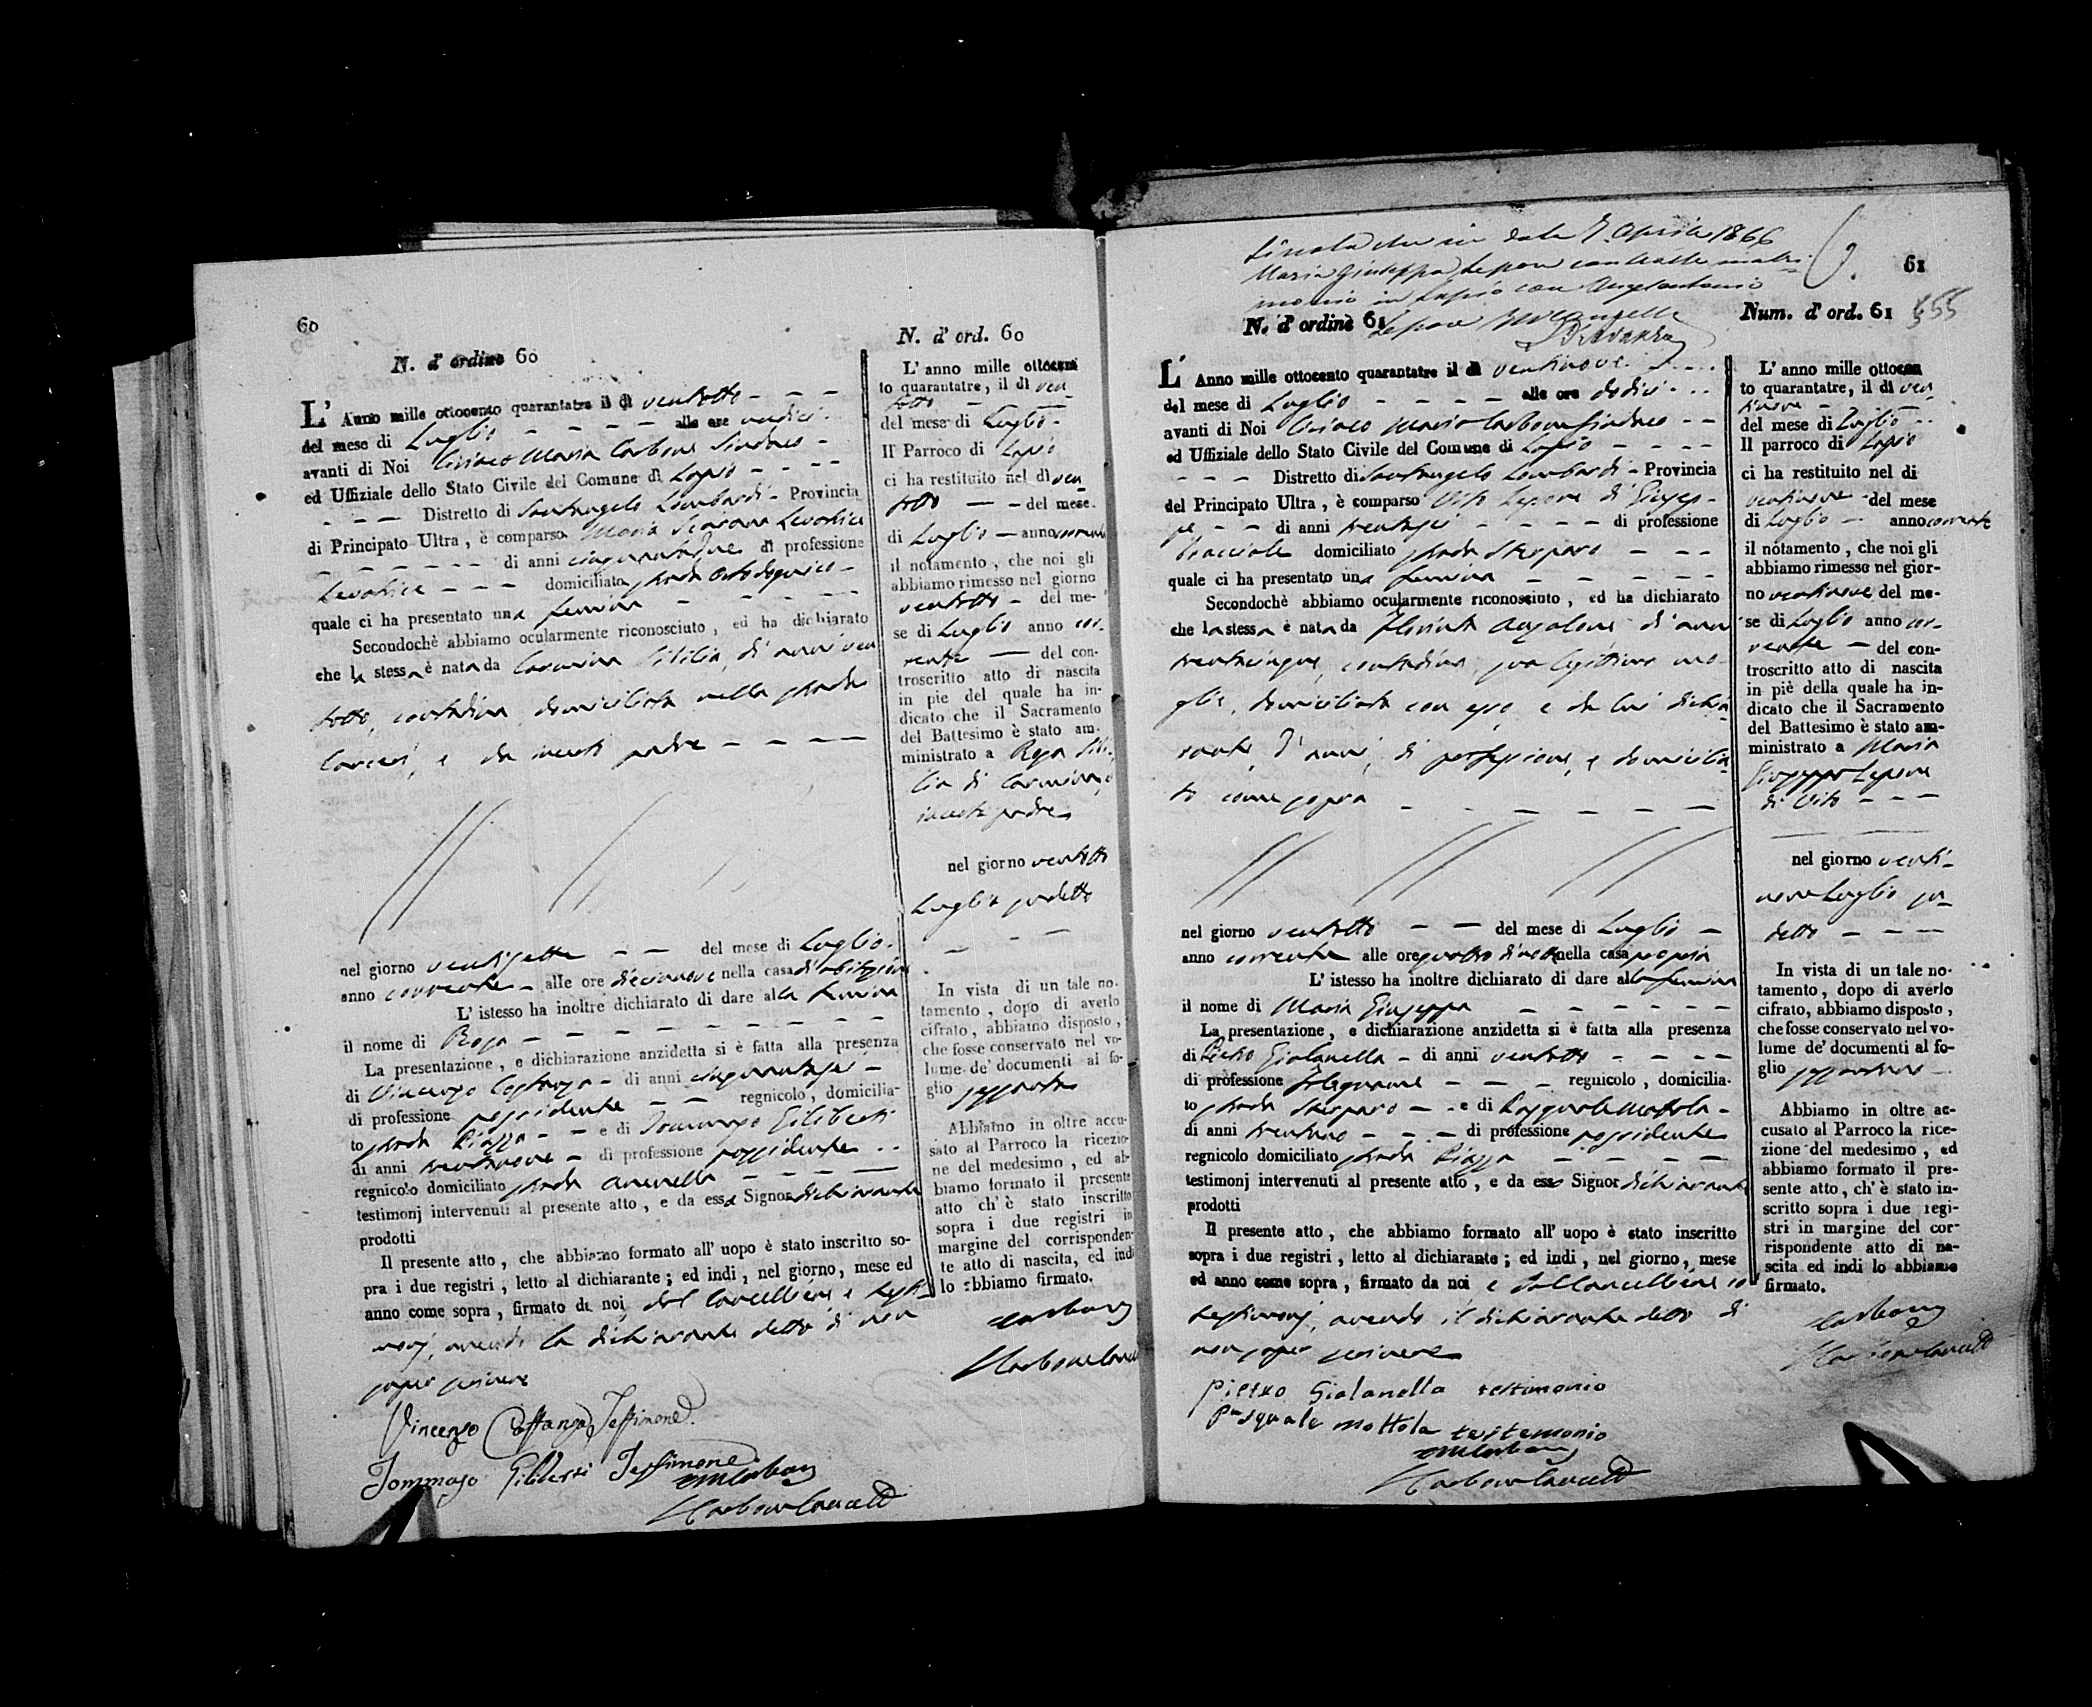 60
N. d' ordine 60
L' Anno mille ottocento quarantatre il di ventotto
del mese di Luglio alle ore undici
avanti di Noi Ciriaco Maria Carbone Sindaco
ed Uffiziale dello Stato Civile del Comune di Lapio
Distretto di Santangelo Lombardi Provincia
di Principato Ultra, è comparso Maria Levatrice
di anni cinquantadue di professione
Levatrice domiciliata strada
quale ci ha presentato una femina
Secondochè abbiamo ocularmente riconosciuto, ed ha dichiarato
che la stessa è nata da Carmina Sitilia, di anni ven
totto, contadina, domiciliata nella strada
e da incerto padre
nel giorno ventisette del mese di Luglio
anno corrente alle ore diecinove nella casa d'abitazione
L' istesso ha inoltre dichiarato di dare alla femina
il nome di Rosa
La presentazione, e dichiarazione anzidetta si è fatta alla presenza
di Vincenzo Costanza di anni cinquantasei
di professione possidente regnicolo, domicilia-
to strada Piazza e di Tommaso Giliberti
di anni trentanove di professione possidente
regnicolo domiciliato strada
testimonj intervenuti al presente atto, e da essa Signor dichiarante
prodotti
Il presente atto, che abbiamo formato all' uopo è stato inscritto so-
pra i due registri, letto al dichiarante; ed indi, nel giorno, mese ed
anno come sopra, firmato da noi, dal Cancelliere e testi-
monj, avendo la dichiarante detto di non
saper scrivere
Vincenzo Costanza Testimone
Tommaso Giliberti Testimone
CMCarbone
Carbone Cancell
N. d' ord. 60
L' anno mille ottocen
to quarantatre, il di ven
totto
del mese di Luglio
Il Parroco di Lapio
ci ha restituito nel dì ven
totto del mese
di Luglio anno corrente
il notamento, che noi gli
abbiamo rimesso nel giorno
ventotto del me-
se di Luglio anno cor-
rente del con-
troscritto atto di nascita
in pie del quale ha in-
dicato che il Sacramento
del Battesimo è stato am-
ministrato a Rosa Siti-
lia di Carmina, e
incerto padre
nel giorno ventotto
Luglio sudetto
In vista di un tale no-
tamento, dopo di averlo
cifrato, abbiamo disposto,
che fosse conservato nel vo-
lume de' documenti al fo-
glio sessanta
Abbiamo in oltre accu-
sato al Parroco la ricezio-
ne del medesimo, ed ab-
biamo formato il presente
atto ch' è stato inscritto
sopra i due registri in
margine del corrisponden-
te atto di nascita, ed indi
lo abbiamo firmato.
Carbone
Carbone Cancell
in data 7 Aprile 1866
Maria Giuseppa Lepore contratto matri-
monio in Lapio con Angelantonio
Lepore
61
N. d' ordine 61
L' Anno mille ottocento quarantatre il di ventinove
del mese di Luglio alle ore dodici
avanti di Noi Ciriaco Maria Carbone Sindaco
ed Uffiziale dello Stato Civile del Comune di Lapio
Distretto di Santangelo Lombardi Provincia
del Principato Ultra, è comparso Vito Lepore di Giusep-
pe di anni trentasei di professione
bracciale domiciliato strada
quale ci ha presentato una femina
Secondochè abbiamo ocularmente riconosciuto, ed ha dichiarato
che la stessa è nata da Florinta di anni
trentacinque, contadina sua legittima mo-
glie, domiciliata con esso, e da lui dichia-
rante, d' anni, di professione, e domicilia-
to come sopra
nel giorno ventotto del mese di Luglio
anno corrente alle ore quattro di notte nella casa propria
L' istesso ha inoltre dichiarato di dare alla femina
il nome di Maria Giuseppa
La presentazione, e dichiarazione anzidetta si è fatta alla presenza
di Pietro Gialanella di anni ventotto
di professione Falegname regnicolo, domicilia-
to strada e di Pasquale Mottola
di anni trentuno di professione possidente
regnicolo domiciliato strada Piazza
testimonj intervenuti al presente atto, e da esso Signor dichiarante
prodotti
Il presente atto, che abbiamo formato all' uopo è stato inscritto
sopra i due registri, letto al dichiarante; ed indi, nel giorno, mese
ed anno come sopra, firmato da noi e dal Cancelliere co
testimonj, avendo il dichiarante detto di
non saper scrivere
Pietro Gialanella testimonio
Pasquale Mottola testemonio
CMCarbone
Carbone Cancell
Num. d' ord. 61
L' anno mille ottocen
to quarantatre, il di ven
tinove
del mese di Luglio
Il parroco di Lapio
ci ha restituito nel di
ventinove del mese
di Luglio anno corrente
il notamento, che noi gli
abbiamo rimesso nel gior-
no ventinove del me-
se di Luglio anno cor-
rente del con-
troscritto atto di nascita
in piè della quale ha in-
dicato che il Sacramento
del Battesimo è stato am-
ministrato a Maria
Giuseppa Lepore
di Vito
nel giorno venti-
nove Luglio su-
detto
In vista di un tale no-
tamento, dopo di averlo
cifrato, abbiamo disposto,
che fosse conservato nel vo-
lume de' documenti al fo-
glio sessantuno
Abbiamo in oltre ac-
cusato al Parroco la rice-
zione del medesimo, ed
abbiamo formato il pre-
sente atto, ch' è stato in-
scritto sopra i due regi-
stri in margine del cor-
rispondente atto di na-
scita ed indi lo abbiamo
firmato.
Carbone
Carbone Cancell